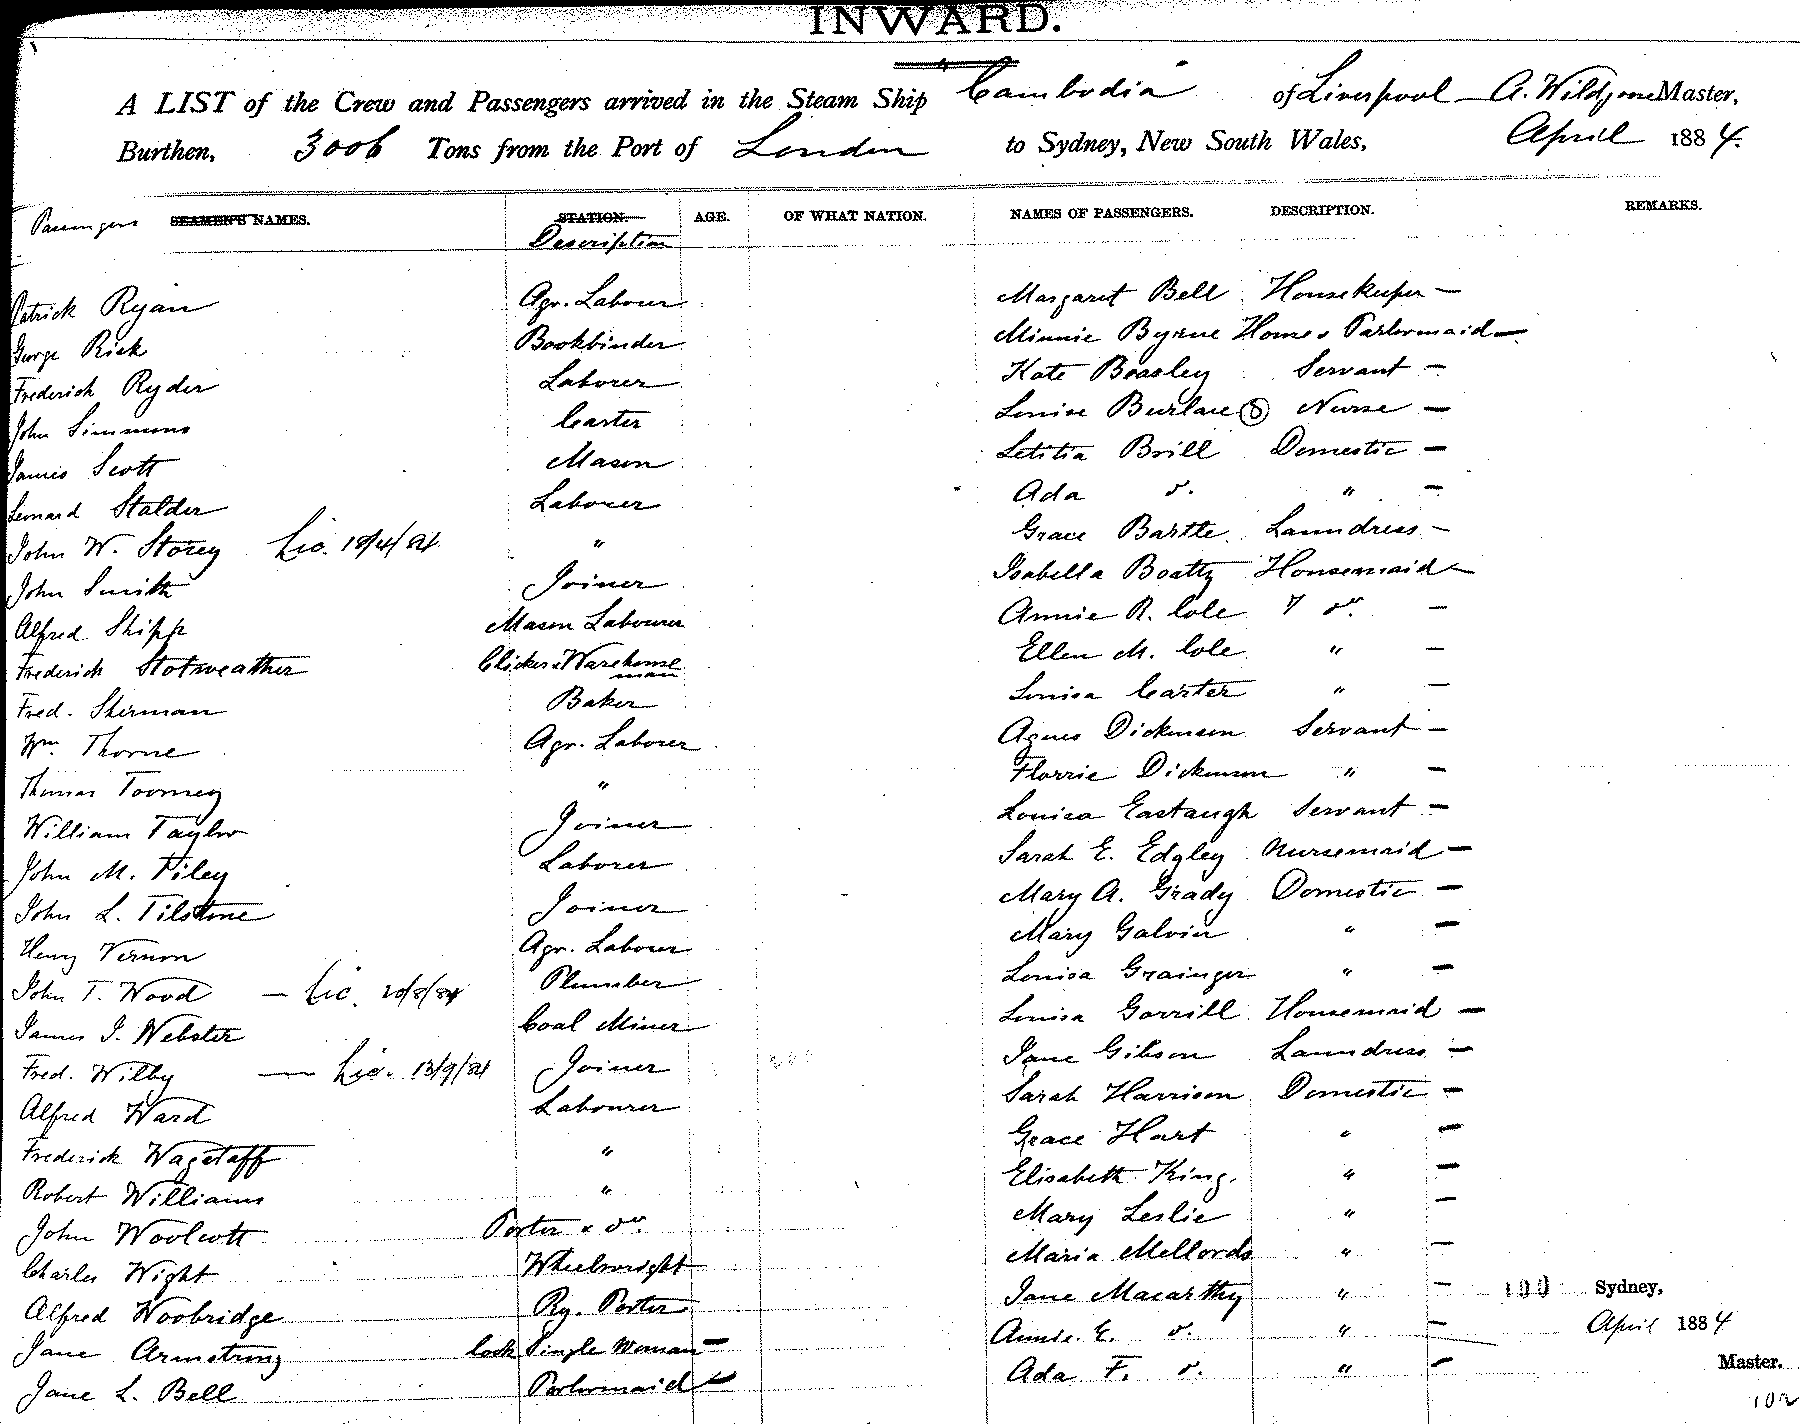 INWARD.
A LIST of the Crew and Passengers arrived in the Steam Ship Cambodia of Liverpool A. Master,
Burthen, 3006 Tons from the Port of London to Sydney, New South Wales, April 1884.
Passengers SEAMEN'S NAMES. STATION. AGE. OF WHAT NATION. NAMES OF PASSENGERS. DESCRIPTION. REMARKS.
Description
Patrick Ryan Agr. Labourer Margaret Bell Housekeeper —
George Rick Bookbinder Minnie Byrne House & Parlormaid —
Frederick Ryder Laborer Kate Beasley Servant —
John Simmons Carter Louise Burlace Nurse —
James Scott Mason Letitia Brill Domestic —
Leonard Stalder Laborer Ada do. " —
John W. Storey Lic. 18/4/84 " Grace Bartle Laundress —
John Smith Joiner Isabella Beatty Housemaid —
Alfred Shipp Mason Labourer Annie R. Cole do. —
Frederick Stotweather Clicker & Warehouse Ellen M. Cole " —
man
Fred. Sherman Baker Louisa Carter " —
Wm. Thorne Agr. Laborer Agnes Dickenson Servant —
Thomas Toomey " Florrie Dickenson " —
William Taylor Joiner Louisa Eastaugh Servant —
John M. Tiley Laborer Sarah E. Edgley Nursemaid —
John L. Tilstone Joiner Mary A. Grady Domestic —
Henry Vernon Agr. Labourer Mary Galvin " —
John T. Wood — Lic. Plumber Louisa Grainger " —
James J. Webster Coal Miner Louisa Gorrill Housemaid —
Fred. Wilby — Lic. 13/9/84 Joiner Jane Gibson Laundress —
Alfred Ward Labourer Sarah Harrison Domestic —
Frederick Wagstaff " Grace Hart " —
Robert Williams " Elisabeth King. " —
John Woolcott Porter & do. Mary Leslie " —
Charles Wight Wheelwright Maria Mellords " —
Alfred Woobridge Ry. Porter Jane Macarthy " — 100 Sydney,
Jane Armstrong Cook Single Woman — Annie E. do. " — April 1884
Jane L. Bell Parlormaid — Ada F. do. " — Master.
102